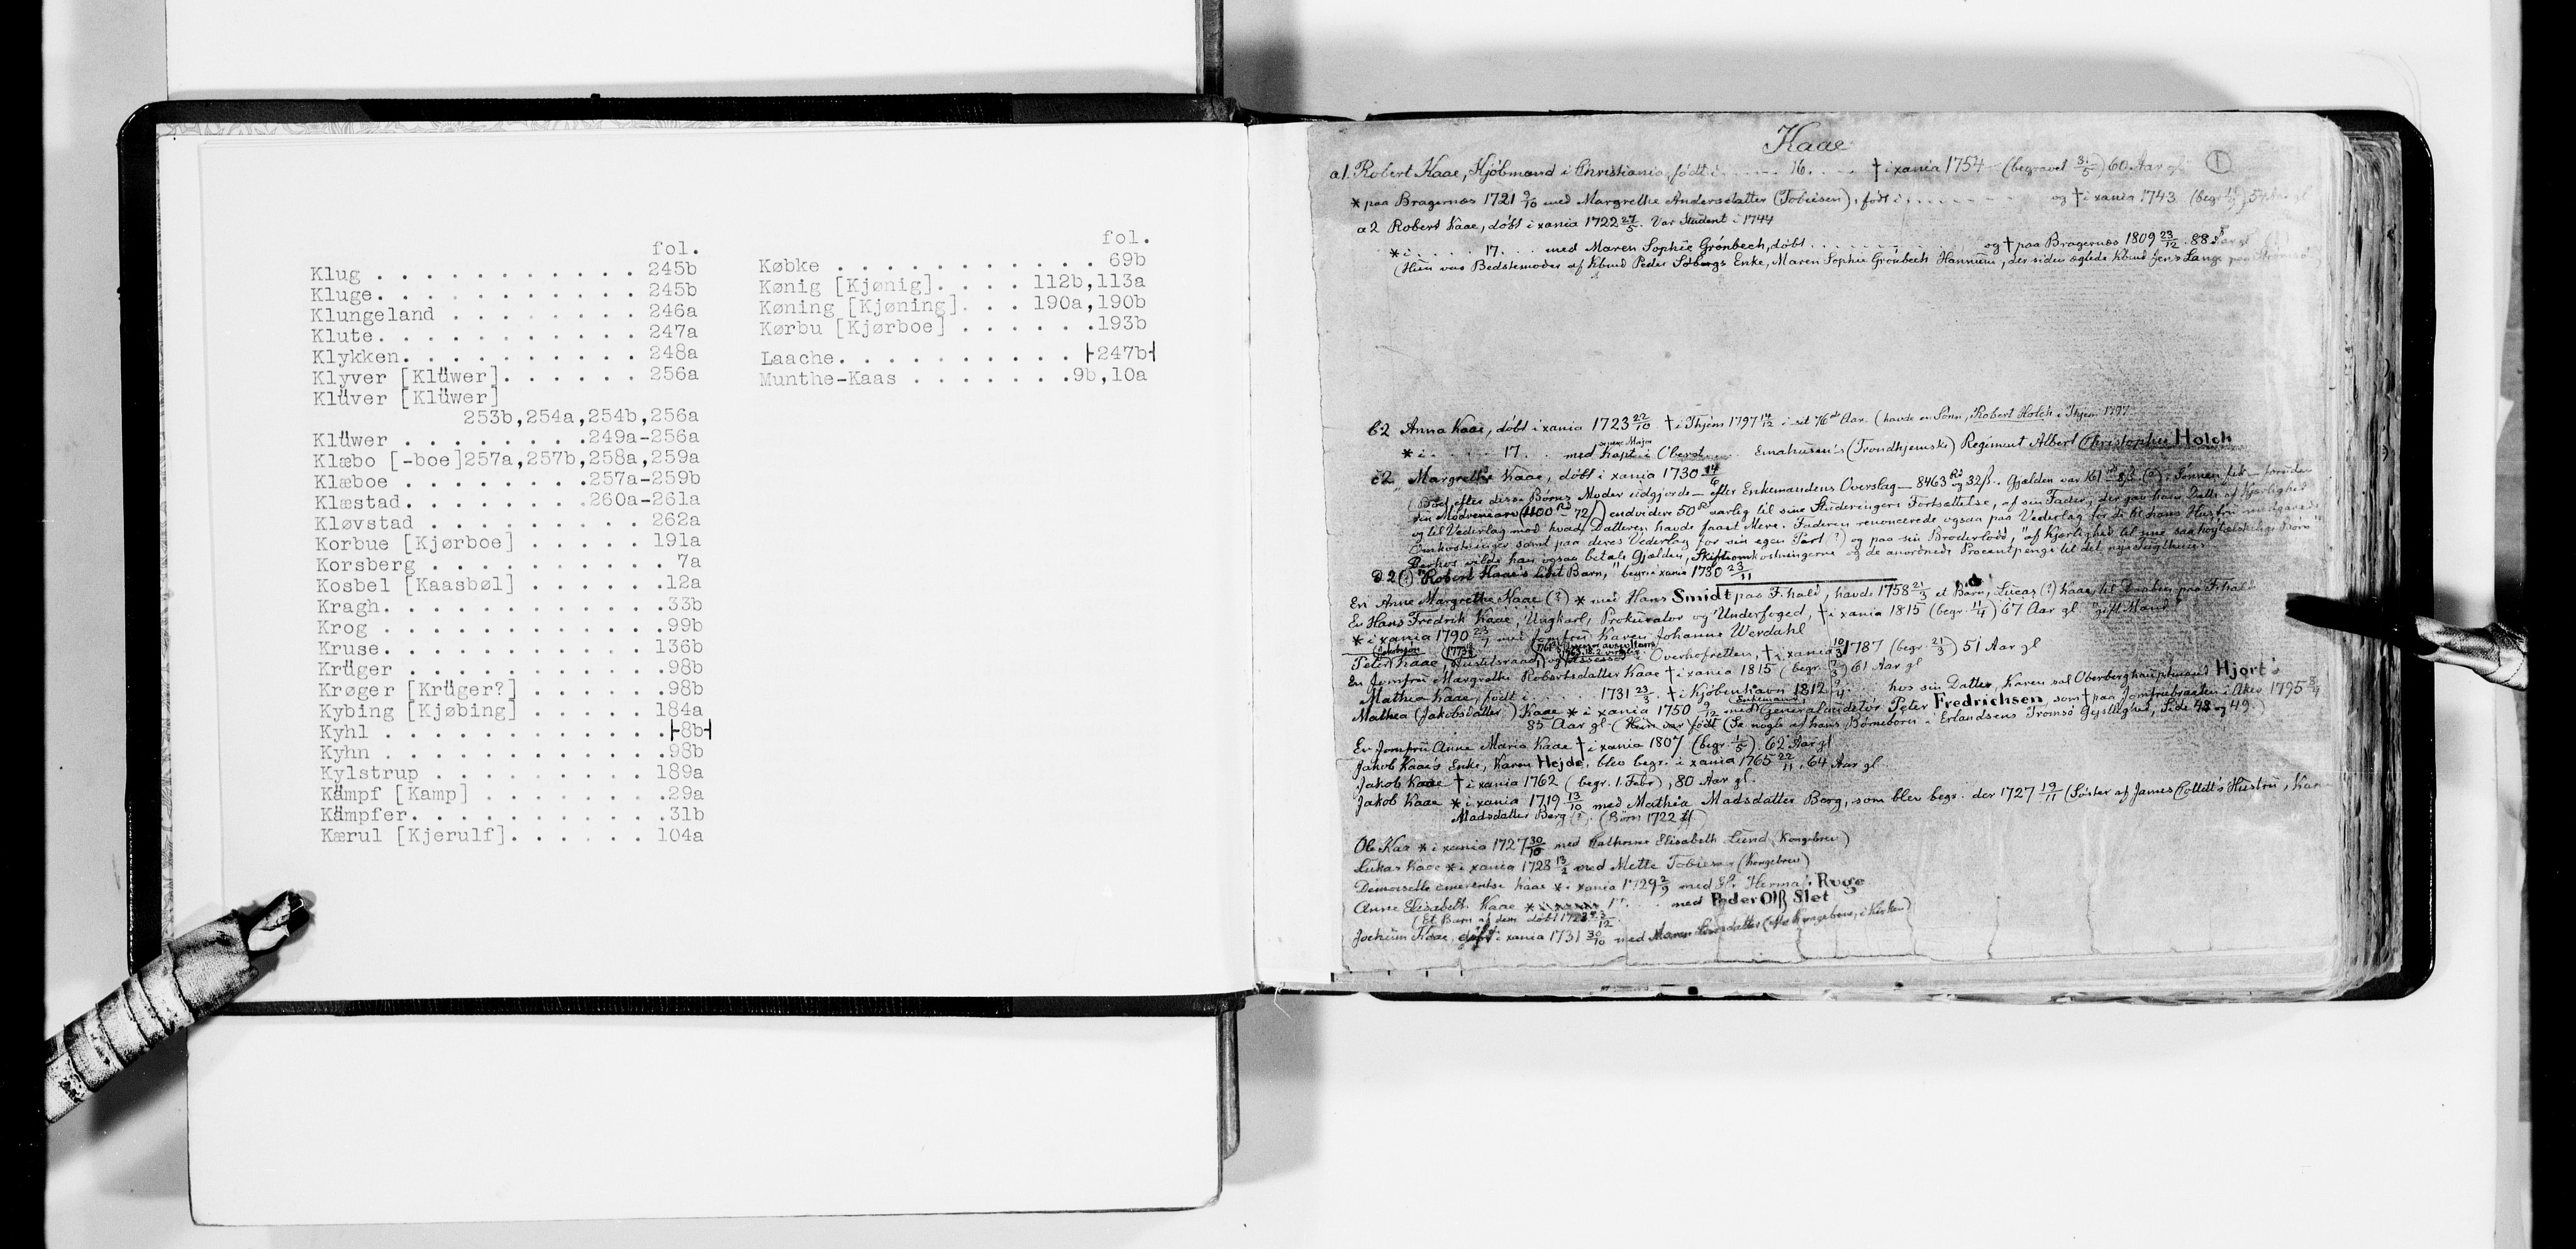 fol.
Klug . . . . . . . . . . . . 245b
Kluge. . . . . . . . . . . . 245b
Klungeland . . . . . . . . . 246a
Klute. . . . . . . . . . . . 247a
Klykken. . . . . . . . . . . 248a
Klyver [Klüwer]. . . . . . . 256a
Klüver [Klüwer]
253b,254a,254b,256a
Klüwer . . . . . . . . .249a-256a
Klæbo [-boe]257a,257b,258a,259a
Klæboe . . . . . . . . .257a-259b
Klæstad. . . . . . . . .260a-261a
Kløvstad . . . . . . . . . . 262a
Korbue [Kjørboe] . . . . . . 191a
Korsberg . . . . . . . . . . 7a
Kosbel [Kaasbøl] . . . . . . .12a
Kragh. . . . . . . . . . . . .33b
Krog . . . . . . . . . . . . .99b
Kruse. . . . . . . . . . . . 136b
Krüger . . . . . . . . . . . .98b
Krøger [Krüger?] . . . . . . .98b
Kybing [Kjøbing] . . . . . . 184a
Kyhl . . . . . . . . . . . . .⊢8b⊣
Kyhn . . . . . . . . . . . . .98b
Kylstrup . . . . . . . . . . 189a
Kämpf [Kamp] . . . . . . . . .29a
Kämpfer. . . . . . . . . . . .31b
Kærul [Kjerulf]. . . . . . . 104a
fol.
Købke . . . . . . . . . . . . 69b
Kønig [Kjønig]. . . . . 112b,113a
Køning [Kjøning]. . . . 190a,190b
Kørbu [Kjørboe] . . . . . . .193b
Laache. . . . . . . . . . . ⊢247b⊣
Munthe-Kaas . . . . . . . .9b,10a
Kaae
1
a1. Robert Kaae, Kjöbmand i Christiania, født i . . . . . 16. . . . . † i xania 1754 (begravet 31/5) 60 Aar gl
* paa Bragernæs 1721 9/10 med Margrethe Andersdatter (Tobiesen), født i . . . . . . . og † i xania 1743 (begr
a2 Robert Kaae, døbt i xania 1722 27/5. Var Student i 1744
* i . . . . . 17. . . med Maren Sophie Grønbech, døbt . . . . . . . og † paa Bragernæs 1809 23/12. 88 Aar gl
(Hun var Bedstemoder af Kbmd Peder Enke, Maren Sophie Grønbech Hannum, der siden ægtede Kbmd Jens Lange paa
b2 Anna Kaae, døbt i xania 1723 22/10 † i Thjem 1797 14/12 i sit 76de Aar (havde en Sønn, Robert Holch i Thjem 1797
* i . . . . . 17. . . med Kapt. i Oberst (Trondhjemske) Regiment Albert Christopher Holch
senere Major
c2 Margrethe Kaae, døbt i xania 1730 14/6
(Boet efter disse Børns Moder udgjorde — efter Enkemandens Overslag — 8463 Rd og 32 ß. Gjælden var
endvidere 50 aarlig til sine Studeringers Fortsættelse, af sin Fader,
og til Vederlag mod hvad Datteren havde faaet Mere. Faderen renoncerede ogsaa paa Vederlag for
Omkostninger samt paa deres Vederlag for sin egen Part (?) og paa sin Broderlodd, "af Kjærlighed til sine saa højtelskelige Børn"
Derhos vilde han ogsaa betale Gjælden, Skifteomkostningerne og de anordnede Procentpenge til det nye Tugthuus
d2 (?) "Robert Kaae's lidet Barn," begr. i xania 1730 23/11
En Anne Margrethe Kaae (?) * med Hans Smidt paa F.hald, havde 1758 21/3 et Barn, Lucas (?) Kaae, til Daaben paa F.hald
En Hans Fredrik Kaae, Ungkarl, Prokurator og Underfoged, † i xania 1815 (begr 11/4) 67 Aar gl "gift Mand"
* i xania 1790 23/7 med Jomfru Karen Johanne Werdahl
Peter Kaae, Justitsraad, og Assessor i Overhofretten, † i xania 10/3 1787 (begr 21/3) 51 Aar gl
En Jomfru Margrethe Robertsdatter Kaae † i xania 1815 (begr. 61 Aar gl
Mathea Kaae, født i . . . . . 1731 23/3. † i Kjøbenhavn 1812 hos sin Datter, Karen sal Oberberghauptmand Hjort's
Mathea (Jakobsdatter) Kaae * i xania 1750 9/12 med Generalauditør Peter Fredrichsen, som † paa Jomfrubraaten i Aker 1795
Enkemand
85 Aar gl (Hun var født (Se nogle af hans Børnebørn i Erlandsens Tromsø Gejstlighed, Side 48 og 49.)
En Jomfru Anne Maria Kaae † i xania 1807 (begr. 1/5). 62 Aar gl
Jakob Kaae's Enke, Karen Hejde, blev begr. i xania 1765 22/11. 64 Aar gl
Jakob Kaae † i xania 1762 (begr. 1. Febr), 80 Aar gl.
Jakob Kaae * i xania 1719 13/10 med Mathia Madsdatter Berg, som blev begr. der 1727 19/11 (Søster af James Collett's Hustru,
Madsdatter Berg (?). (Børn 1722
Ole Kaa * i xania 1727 30/10 med Cathrine Elisabeth Lund (Kongebrev)
Lukas Kaae * i xania 1728 13/2 med Mette Tobiesen (Kongebrev)
Demoiselle Emerentse Kaae * i xania 1729 2/9 med Sr. Herman Ruge
Anne Elisabeth Kaae * 17. . . med Peder Olss Slet
(Et Barn af dem døbt 1723
Jochum Kaae i xania 1731 30/10 med Maren